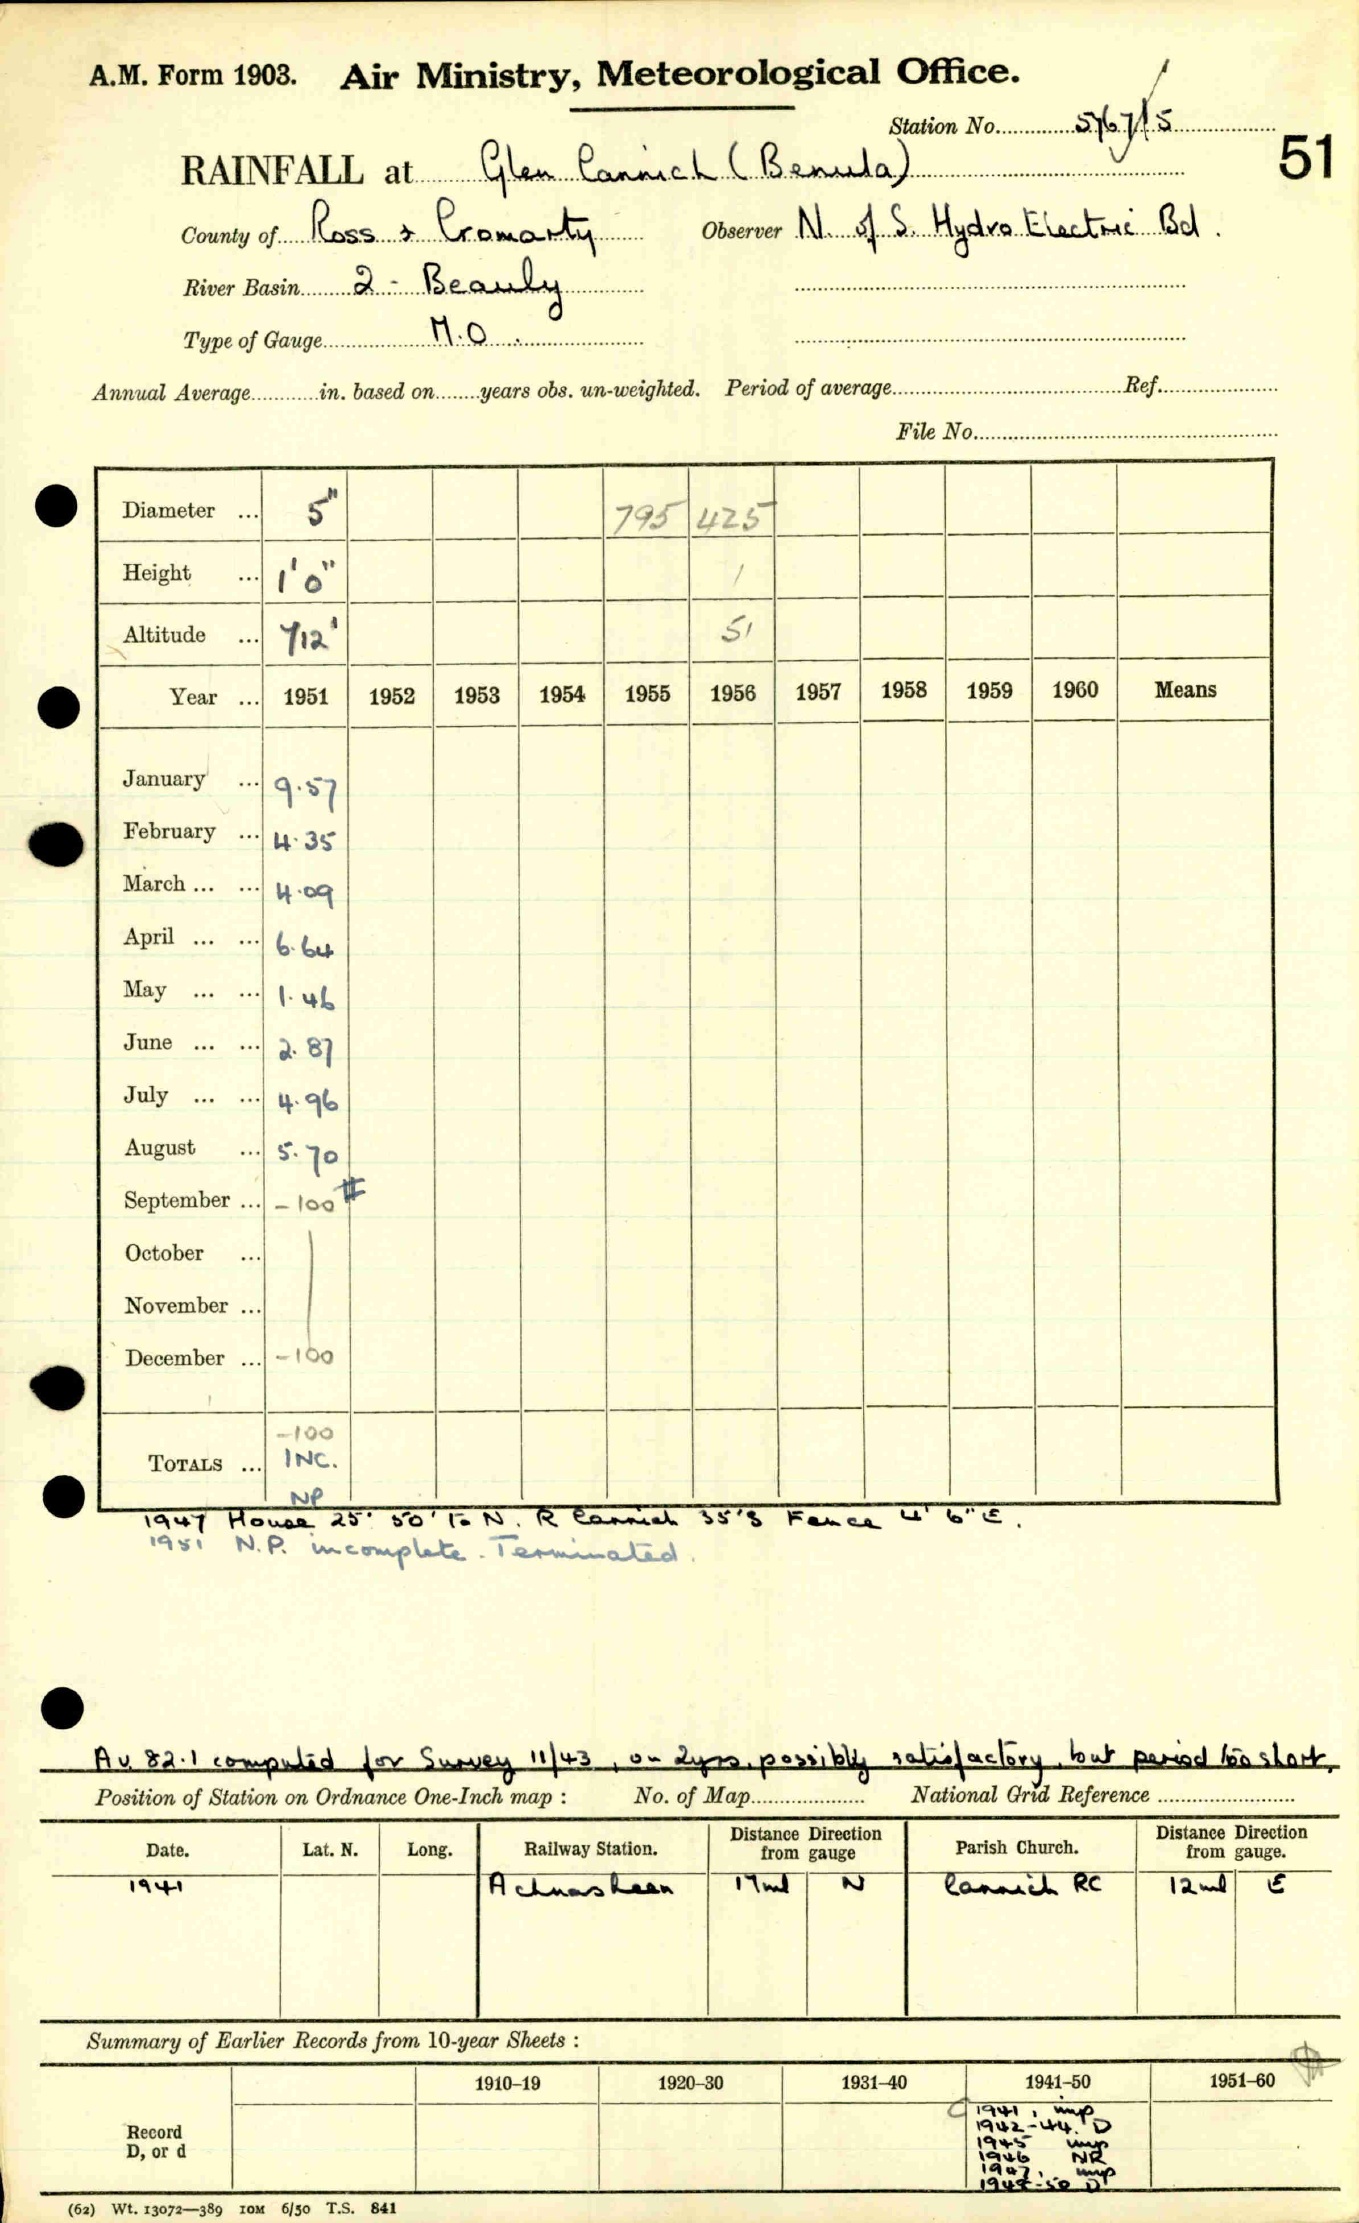 A.M. Form 1903. Air Ministry, Meteorological Office.
Station No. 5767/5
51
RAINFALL at Glen Cannich (Benula)
County of Ross & Cromarty Observer N. of S. Hydro Electric Bd.
River Basin 2 - Beauly
Type of Gauge M.O.
Annual Average in. based on years obs. un-weighted. Period of average Ref.
File No.
Diameter ... 5" 795 425
Height ... 1' 0" 1
Altitude ... 712' 51
Year ... 1951 1952 1953 1954 1955 1956 1957 1958 1959 1960 Means
January ... 9.57
February ... 4.35
March ... ... 4.09
April ... ... 6.64
May ... ... 1.46
June ... ... 2.87
July ... ... 4.96
August ... 5.70
September ... -100 #
October ...
November ...
December ... -100
-100
TOTALS ... INC.
NP
1947 House 25' 50' to N. R Cannich 35' S Fence 4' 6" E.
1951 N.P. incomplete. Terminated.
Av. 82.1 computed for Survey 11/43, on 2yrs, possibly satisfactory, but period too short.
Position of Station on Ordnance One-Inch map : No. of Map National Grid Reference
Date. Lat. N. Long. Railway Station. Distance from Direction gauge Parish Church. Distance from Direction gauge.
1941 Achnasheen 17ml N Cannich RC 12ml E
Summary of Earlier Records from 10-year Sheets :
1910–19 1920–30 1931–40 1941–50 1951–60
Record
D, or d
1941, imp
1942-44. D
1945 imp
1946 NR
1947, imp
1948-50 D
(62) Wt. 13072—389 10M 6/50 T.S. 841